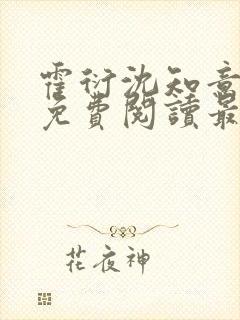 霍衍沈知意
免費閱讀最
花夜神